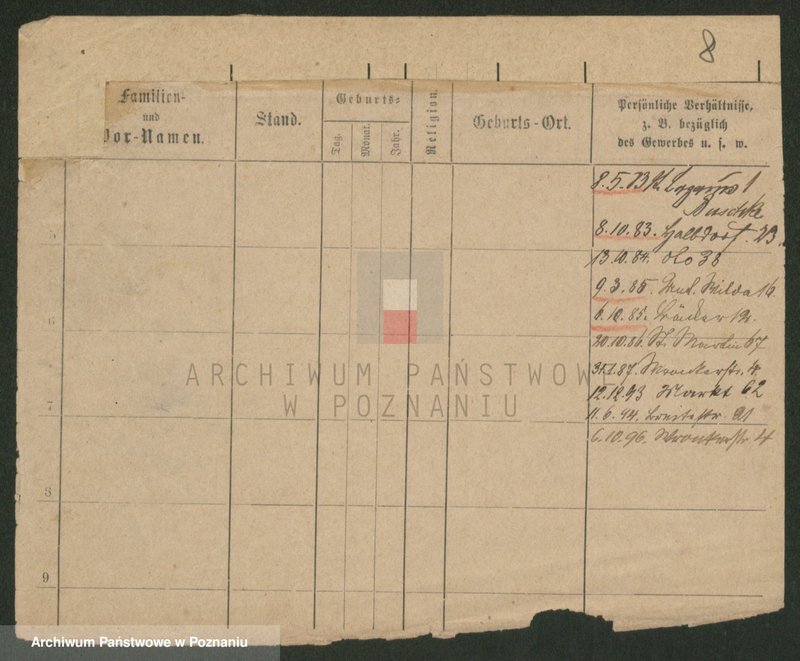 8
Familien-
und
Vor-Namen.
Stand.
Geburts-
Tag.
Monat.
Jahr.
Religion.
Geburts-Ort.
Persönliche Verhältnisse,
z. B. bezüglich
des Gewerbes u. s. w.
8.5.83 St. Lazarus 1
8.10.83. Halbdorf. 23
13.10.84. dto 38
9.3.85. Wilda 16
6.10.85.
20.10.86. St. Martin 67
31.1.87. Wronkerstr. 4
12.12.93 Markt 62
11.6.94. Breitestr. 21
6.10.96. Wronkerstr 4
6
7
8
9
ARCHIWUM PAŃSTWOW
W POZNANIU
Archiwum Państwowe w Poznaniu